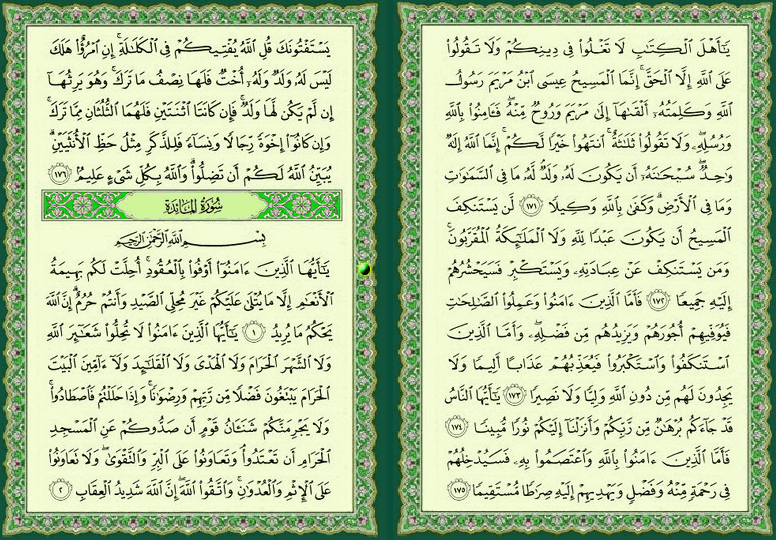 يَـٰٓأَهْلَ ٱلْكِتَـٰبِ لَا تَغْلُوا۟ فِى دِينِكُمْ وَلَا تَقُولُوا۟
عَلَى ٱللَّهِ إِلَّا ٱلْحَقَّ ۚ إِنَّمَا ٱلْمَسِيحُ عِيسَى ٱبْنُ مَرْيَمَ رَسُولُ
ٱللَّهِ وَكَلِمَتُهُۥٓ أَلْقَىٰهَآ إِلَىٰ مَرْيَمَ وَرُوحٌ مِّنْهُ ۖ فَـَٔامِنُوا۟ بِٱللَّهِ
وَرُسُلِهِۦ ۖ وَلَا تَقُولُوا۟ ثَلَـٰثَةٌ ۚ ٱنتَهُوا۟ خَيْرًا لَّكُمْ ۚ إِنَّمَا ٱللَّهُ إِلَـٰهٌ
وَٰحِدٌ ۖ سُبْحَـٰنَهُۥٓ أَن يَكُونَ لَهُۥ وَلَدٌ ۘ لَّهُۥ مَا فِى ٱلسَّمَـٰوَٰتِ
وَمَا فِى ٱلْأَرْضِ ۗ وَكَفَىٰ بِٱللَّهِ وَكِيلًا ١٧١ لَّن يَسْتَنكِفَ
ٱلْمَسِيحُ أَن يَكُونَ عَبْدًا لِّلَّهِ وَلَا ٱلْمَلَـٰٓئِكَةُ ٱلْمُقَرَّبُونَ ۚ
وَمَن يَسْتَنكِفْ عَنْ عِبَادَتِهِۦ وَيَسْتَكْبِرْ فَسَيَحْشُرُهُمْ
إِلَيْهِ جَمِيعًا ١٧٢ فَأَمَّا ٱلَّذِينَ ءَامَنُوا۟ وَعَمِلُوا۟ ٱلصَّـٰلِحَـٰتِ
فَيُوَفِّيهِمْ أُجُورَهُمْ وَيَزِيدُهُم مِّن فَضْلِهِۦ ۖ وَأَمَّا ٱلَّذِينَ
ٱسْتَنكَفُوا۟ وَٱسْتَكْبَرُوا۟ فَيُعَذِّبُهُمْ عَذَابًا أَلِيمًا وَلَا
يَجِدُونَ لَهُم مِّن دُونِ ٱللَّهِ وَلِيًّا وَلَا نَصِيرًا ١٧٣ يَـٰٓأَيُّهَا ٱلنَّاسُ
قَدْ جَآءَكُم بُرْهَـٰنٌ مِّن رَّبِّكُمْ وَأَنزَلْنَآ إِلَيْكُمْ نُورًا مُّبِينًا ١٧٤
فَأَمَّا ٱلَّذِينَ ءَامَنُوا۟ بِٱللَّهِ وَٱعْتَصَمُوا۟ بِهِۦ فَسَيُدْخِلُهُمْ
فِى رَحْمَةٍ مِّنْهُ وَفَضْلٍ وَيَهْدِيهِمْ إِلَيْهِ صِرَٰطًا مُّسْتَقِيمًا ١٧٥
يَسْتَفْتُونَكَ قُلِ ٱللَّهُ يُفْتِيكُمْ فِى ٱلْكَلَـٰلَةِ ۚ إِنِ ٱمْرُؤٌا۟ هَلَكَ
لَيْسَ لَهُۥ وَلَدٌ وَلَهُۥٓ أُخْتٌ فَلَهَا نِصْفُ مَا تَرَكَ ۚ وَهُوَ يَرِثُهَآ
إِن لَّمْ يَكُن لَّهَا وَلَدٌ ۚ فَإِن كَانَتَا ٱثْنَتَيْنِ فَلَهُمَا ٱلثُّلُثَانِ مِمَّا تَرَكَ ۚ
وَإِن كَانُوٓا۟ إِخْوَةً رِّجَالًا وَنِسَآءً فَلِلذَّكَرِ مِثْلُ حَظِّ ٱلْأُنثَيَيْنِ ۗ
يُبَيِّنُ ٱللَّهُ لَكُمْ أَن تَضِلُّوا۟ ۗ وَٱللَّهُ بِكُلِّ شَىْءٍ عَلِيمٌۢ ١٧٦
سُورَةُ المَائِدَةِ
بِسْمِ ٱللَّهِ ٱلرَّحْمَـٰنِ ٱلرَّحِيمِ
يَـٰٓأَيُّهَا ٱلَّذِينَ ءَامَنُوٓا۟ أَوْفُوا۟ بِٱلْعُقُودِ ۚ أُحِلَّتْ لَكُم بَهِيمَةُ
ٱلْأَنْعَـٰمِ إِلَّا مَا يُتْلَىٰ عَلَيْكُمْ غَيْرَ مُحِلِّى ٱلصَّيْدِ وَأَنتُمْ حُرُمٌ ۗ إِنَّ ٱللَّهَ
يَحْكُمُ مَا يُرِيدُ ١ يَـٰٓأَيُّهَا ٱلَّذِينَ ءَامَنُوا۟ لَا تُحِلُّوا۟ شَعَـٰٓئِرَ ٱللَّهِ
وَلَا ٱلشَّهْرَ ٱلْحَرَامَ وَلَا ٱلْهَدْىَ وَلَا ٱلْقَلَـٰٓئِدَ وَلَآ ءَآمِّينَ ٱلْبَيْتَ
ٱلْحَرَامَ يَبْتَغُونَ فَضْلًا مِّن رَّبِّهِمْ وَرِضْوَٰنًا ۚ وَإِذَا حَلَلْتُمْ فَٱصْطَادُوا۟ ۚ
وَلَا يَجْرِمَنَّكُمْ شَنَـَٔانُ قَوْمٍ أَن صَدُّوكُمْ عَنِ ٱلْمَسْجِدِ
ٱلْحَرَامِ أَن تَعْتَدُوا۟ ۘ وَتَعَاوَنُوا۟ عَلَى ٱلْبِرِّ وَٱلتَّقْوَىٰ ۖ وَلَا تَعَاوَنُوا۟
عَلَى ٱلْإِثْمِ وَٱلْعُدْوَٰنِ ۚ وَٱتَّقُوا۟ ٱللَّهَ ۖ إِنَّ ٱللَّهَ شَدِيدُ ٱلْعِقَابِ ٢